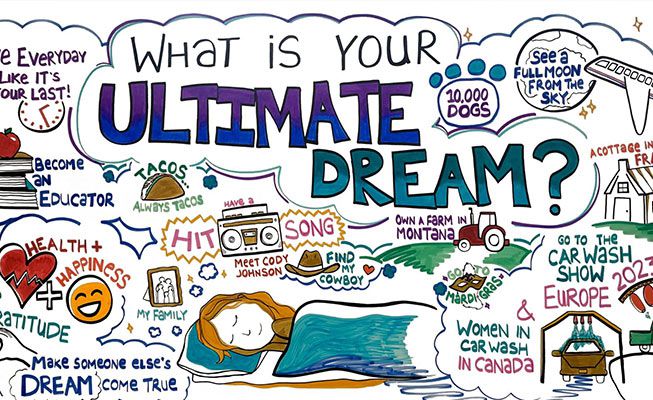 WHAT IS YOUR
ULTIMATE
DREAM?
EVERYDAY
LIKE IT'S
YOUR LAST!
10,000
DOGS
SEE A
FULL MOON
FROM THE
SKY
BECOME
AN
EDUCATOR
TACOS
ALWAYS TACOS
HAVE A
HIT SONG
MEET CODY
JOHNSON
FIND
MY
COWBOY
OWN A FARM IN
MONTANA
A COTTAGE IN
FRA
HEALTH +
HAPPINESS
GRATITUDE
MY FAMILY
GO TO
MARDI GRAS
GO TO THE
CAR WASH
SHOW
EUROPE 2023
&
WOMEN IN
CAR WASH
IN CANADA
MAKE SOMEONE ELSE'S
DREAM COME TRUE